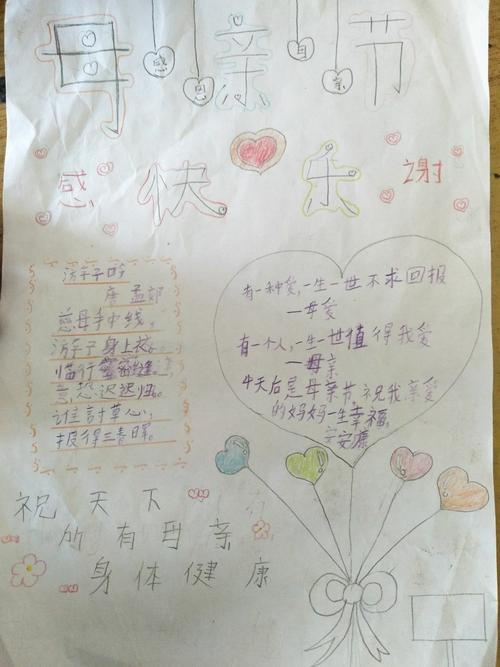 母亲节
感恩
感快乐谢
游子吟
唐 孟郊
慈母手中线,
游子身上衣。
临行密密缝,
意恐迟迟归。
谁討草心,
报得三春晖。
有一种爱,一生一世不求回报
—母爱
有一个人,一生一世值得我爱
—母亲
天后是母亲节,祝我亲爱
的妈妈一生幸福,
安康
祝天下
所有母亲
身体健康